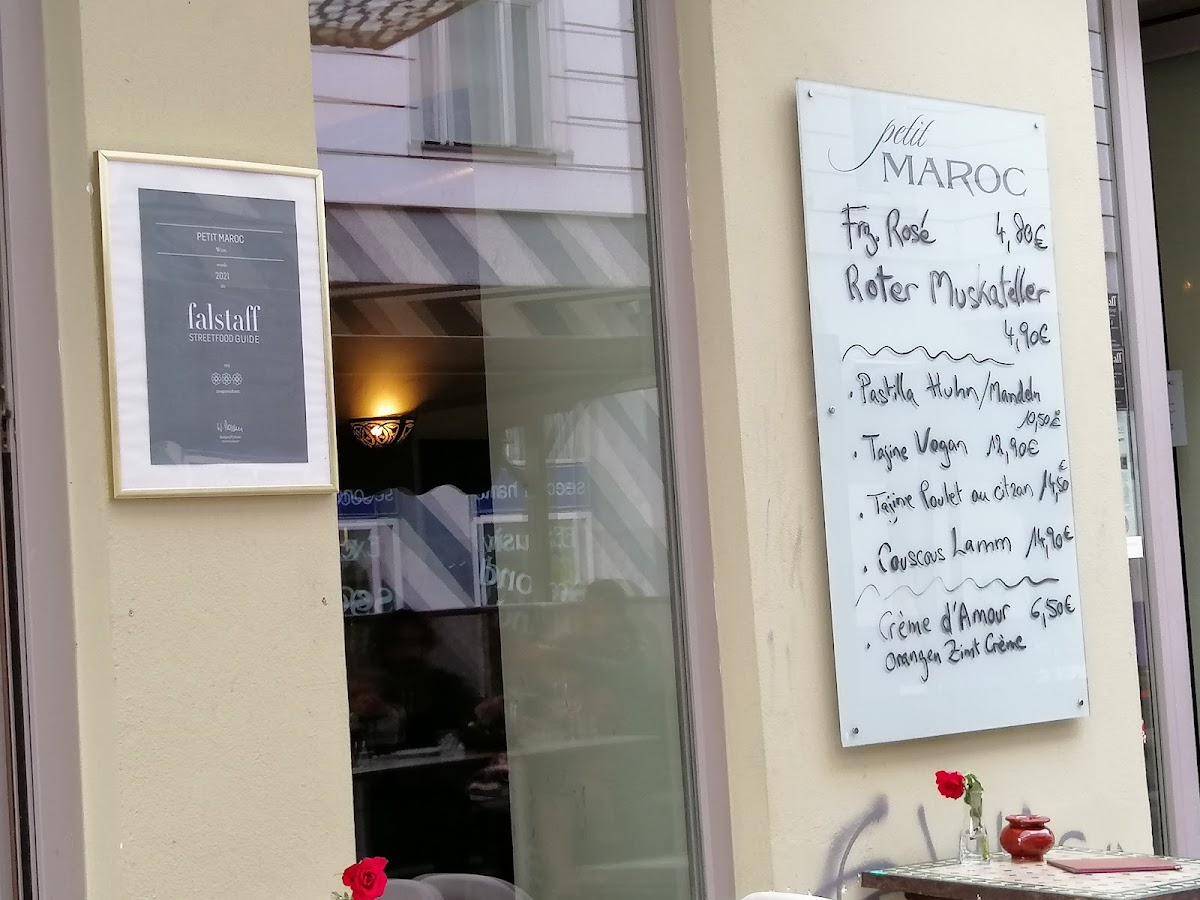 PETIT MAROC
2021
falstaff
STREETFOOD GUIDE
petit
MAROC
Friz. Rosé 4,80€
Roter Muskateller
4,90€
• Pastilla Huhn/Mandeln
10,50€
• Tajine Vegan 12,90€
• Tajine Poulet au citron 14,50€
• Couscous Lamm 14,90€
• Crème d'Amour 6,50€
Orangen Zimt Crème